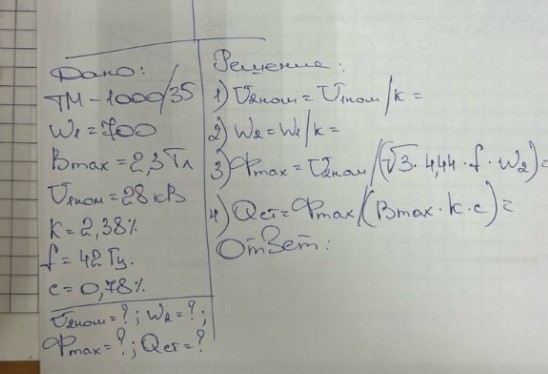 Дано:
ТМ-1000/35
W1 = 700
Bmax = 2,3 Тл
U1ном = 28 кВ
K = 2,38%
f = 42 Гц.
c = 0,78%
U2ном = ?; W2 = ?;
Фmax = ?; Qст = ?
Решение:
1) U2ном = U1ном/к =
2) W2 = W1/к =
3) Фmax = U2ном/(√3 · 4,44 · f · W2) =
4) Qст = Фmax/(Bmax · k · c) =
Ответ: